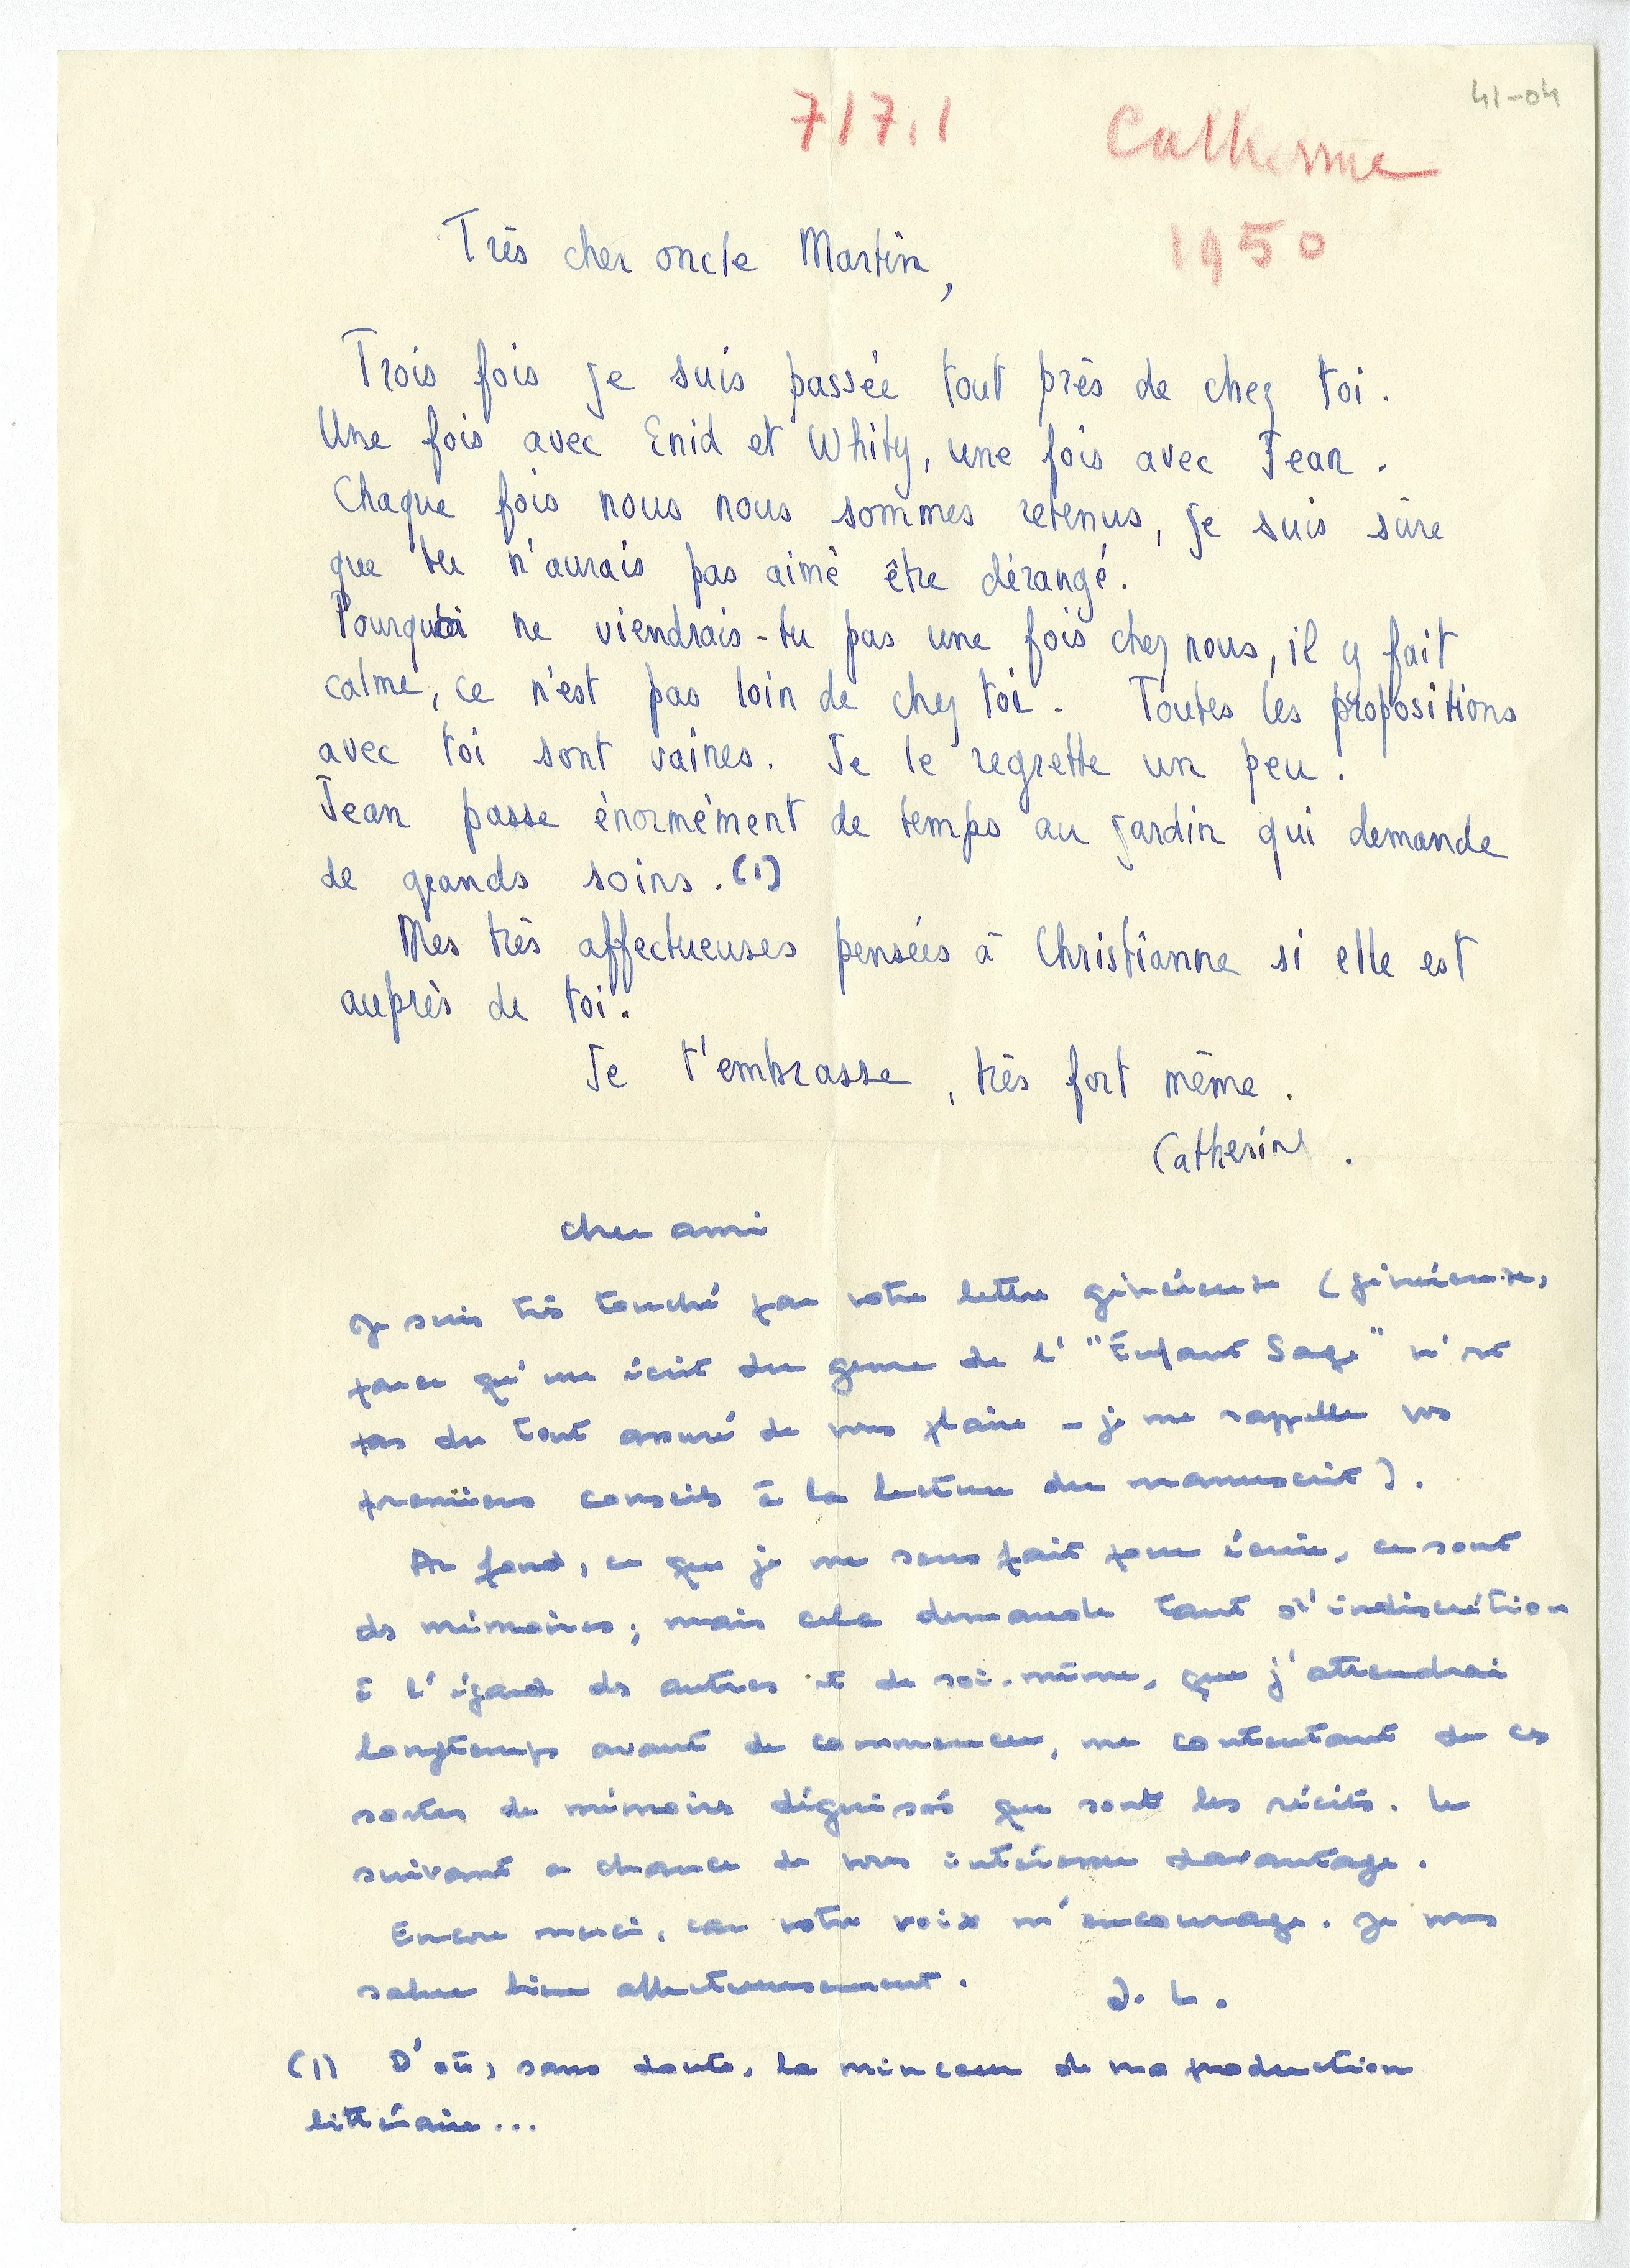 41-04
717.1 Catherine
1950
Très cher oncle Martin,
Trois fois je suis passée tout près de chez toi.
Une fois avec Enid et Whity, une fois avec Jean.
Chaque fois nous nous sommes retenus, je suis sûre
que tu n'aurais pas aimé être dérangé.
Pourquoi ne viendrais-tu pas une fois chez nous, il y fait
calme, ce n'est pas loin de chez toi. Toutes les propositions
avec toi sont vaines. Je le regrette un peu.
Jean passe énormément de temps au jardin qui demande
de grands soins. (1)
Mes très affectueuses pensées à Christianne si elle est
auprès de toi.
Je t'embrasse, très fort même.
Catherine.
Cher ami
Je suis très touché par votre lettre généreuse (généreuse,
parce qu'un écrit du genre de l'"Enfant Sage" n'est
pas du tout assuré de vous plaire - je me rappelle vos
premiers conseils à la lecture du manuscrit).
Au fond, ce que je me sens fait pour écrire, ce sont
des mémoires; mais cela demande tant d'indiscrétion
à l'égard des autres et de soi-même, que j'attendrai
longtemps avant de commencer, me contentant de ces
sortes de mémoires déguisés que sont les récits. Le
suivant a chance de vous intéresser davantage.
Encore merci, car votre voix m'encourage. Je vous
salue bien affectueusement.
J. L.
(1) D'où, sans doute, la minceur de ma production
littéraire...